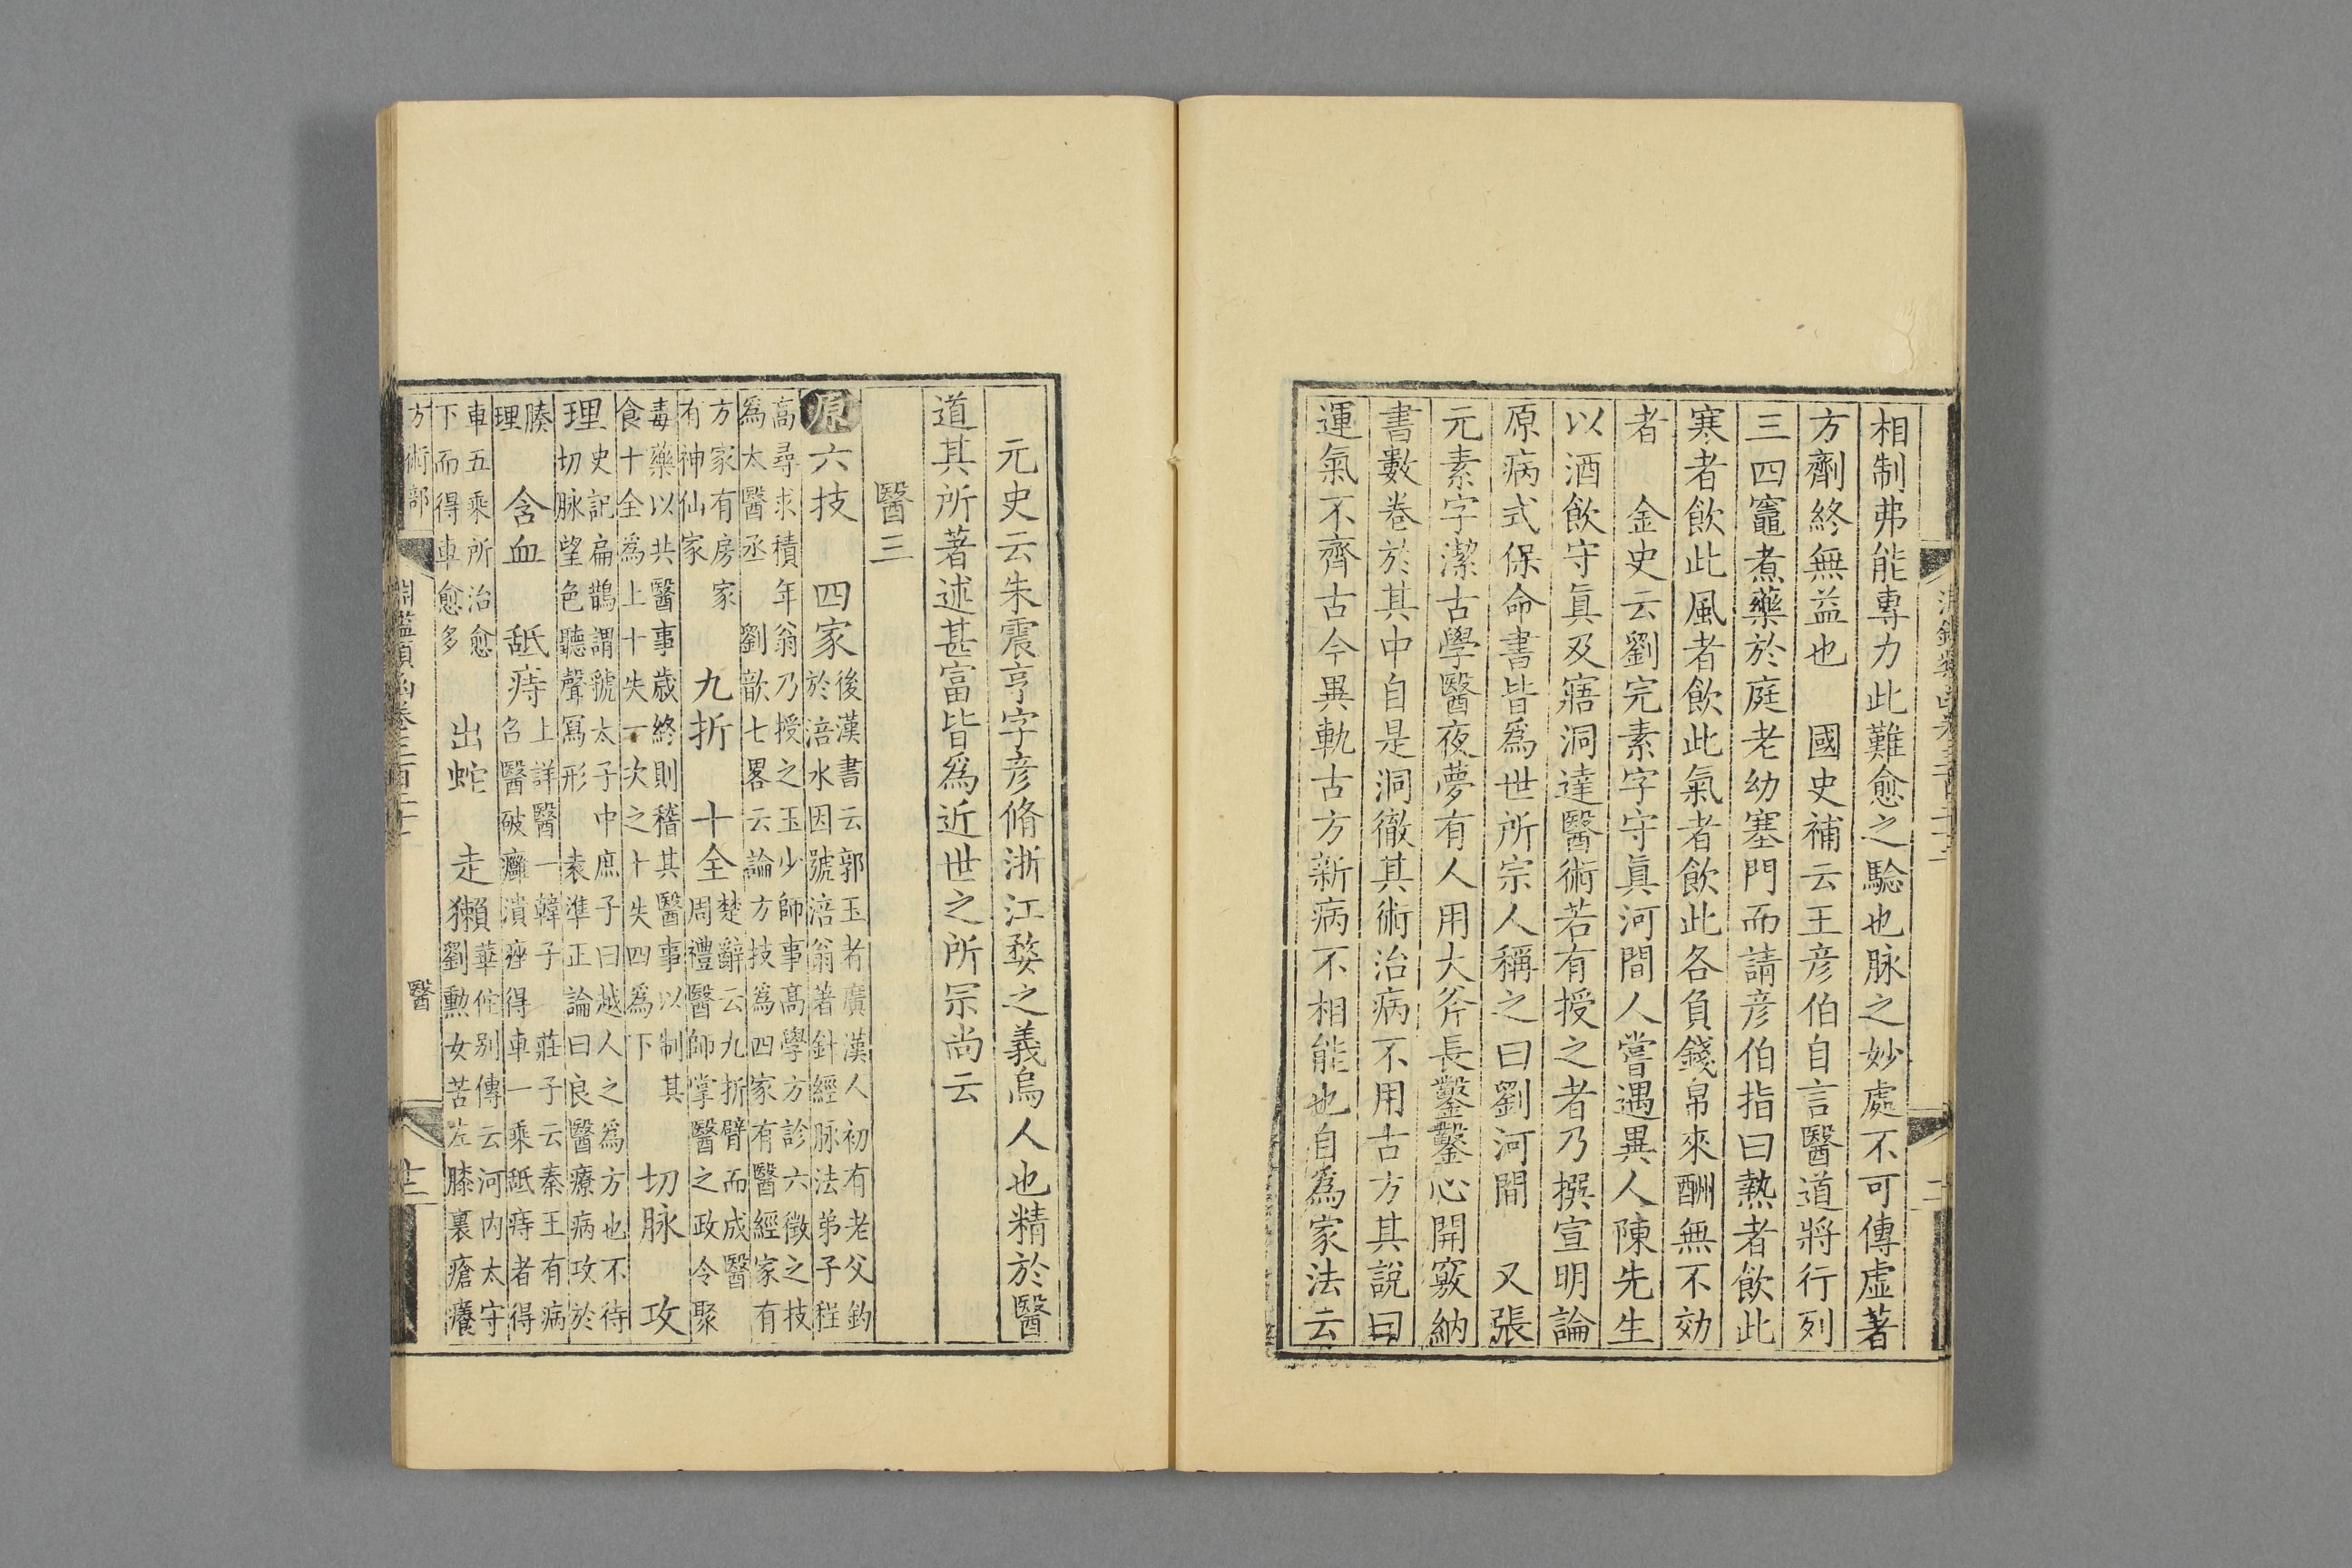 相制弗能專力此難愈之驗也脉之妙處不可傳虛著
方劑終無益也　國史補云王彦伯自言醫道將行列
三四竈煮藥於庭老幼塞門而請彦伯指曰熱者飲此
寒者飲此風者飲此氣者飲此各負錢帛來酬無不効
者　金史云劉完素字守眞河間人嘗遇異人陳先生
以酒飲守眞及寤洞達醫術若有授之者乃撰宣明論
原病式保命書皆爲世所宗人稱之曰劉河間　又張
元素字潔古學醫夜夢有人用大斧長鑿鑿心開竅納
書數卷於其中自是洞徹其術治病不用古方其說曰
運氣不齊古今異軌古方新病不相能也自爲家法云
元史云朱震亨字彦脩浙江婺之義烏人也精於醫
道其所著述甚富皆爲近世之所宗尚云
醫三
原六技　四家後漢書云郭玉者廣漢人初有老父釣
於涪水因號涪翁著針經脉法弟子程
高尋求積年翁乃授之玉少師事高學方診六徵之技
爲太醫丞　劉歆七畧云論方技爲四家有醫經家有
方家有房家
有神仙家　九折　十全楚辭云九折臂而成醫
周禮醫師掌醫之政令聚
毒藥以共醫事歲終則稽其醫事以制其
食十全爲上十失一次之十失四爲下　切脉　攻
理史記扁鵲謂虢太子中庶子曰越人之爲方也不待
切脉望色聽聲寫形　袁準正論曰良醫療病攻於
腠
理　含血　舐痔上詳醫一韓子　莊子云秦王有病
召醫破癰潰痤得車一乘舐痔者得
車五乘所治愈
下而得車愈多　出蛇　走獺華佗别傳云河内太守
劉勲女苦左膝裏瘡癢
方術部
淵鑑類函卷三百二十二
醫